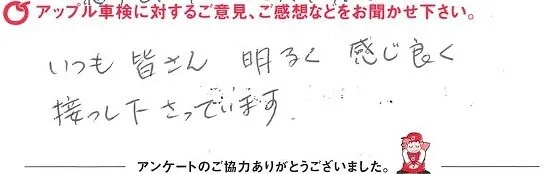 アップル車検に対するご意見、ご感想などをお聞かせ下さい。
いつも 皆さん 明るく 感じ良く
接っし下さっています
アンケートのご協力ありがとうございました。